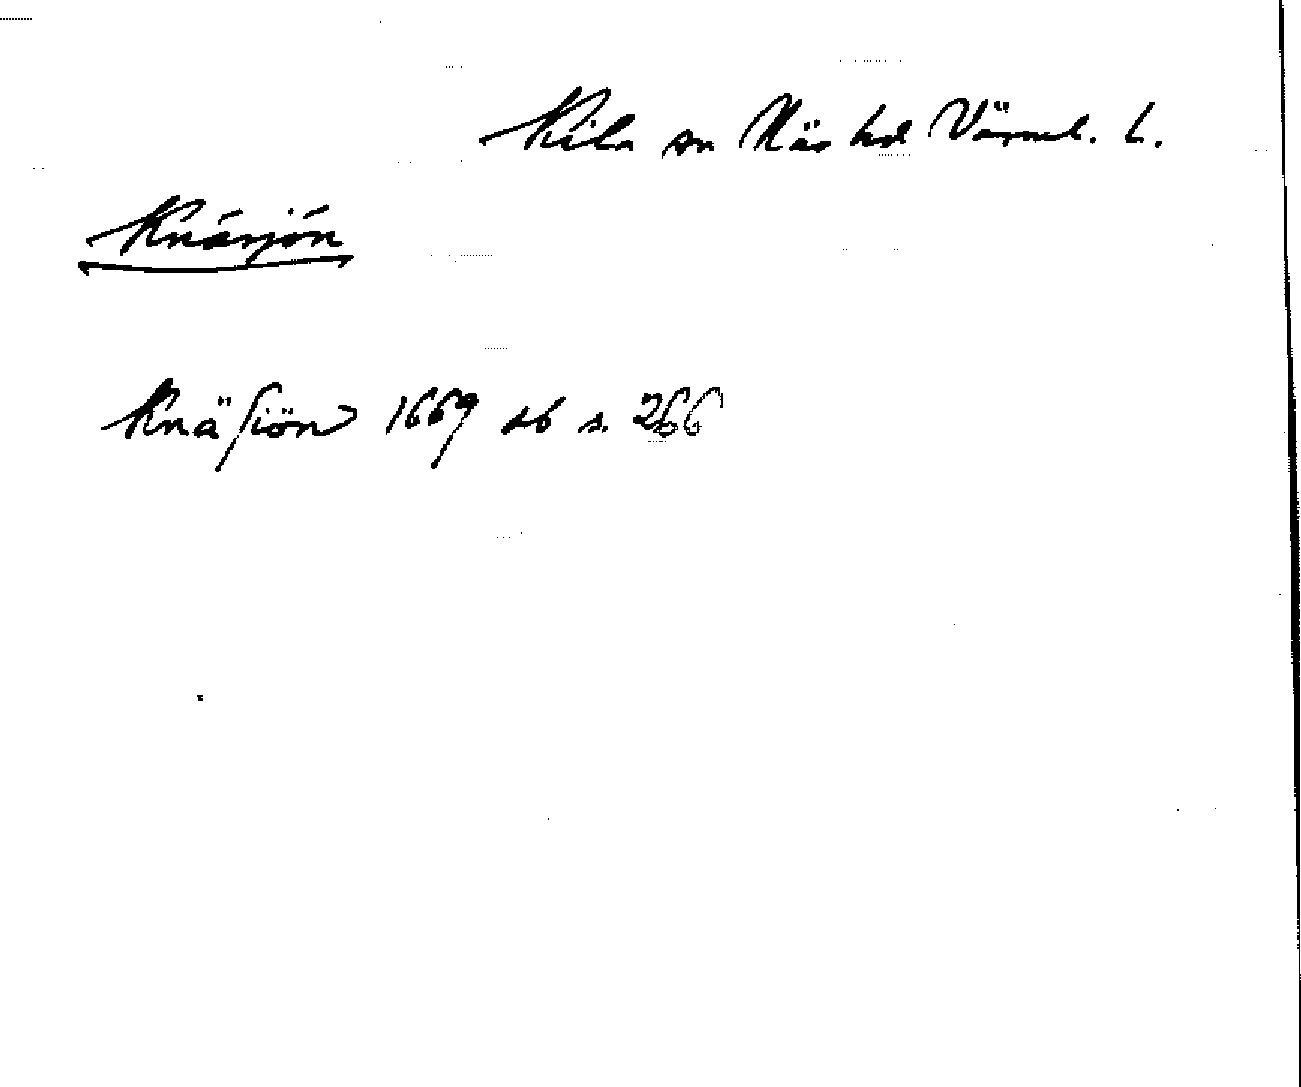 Kila sn Näs hd Värml. l.
Knäsjön
Knäsiön 1669 db s. 266